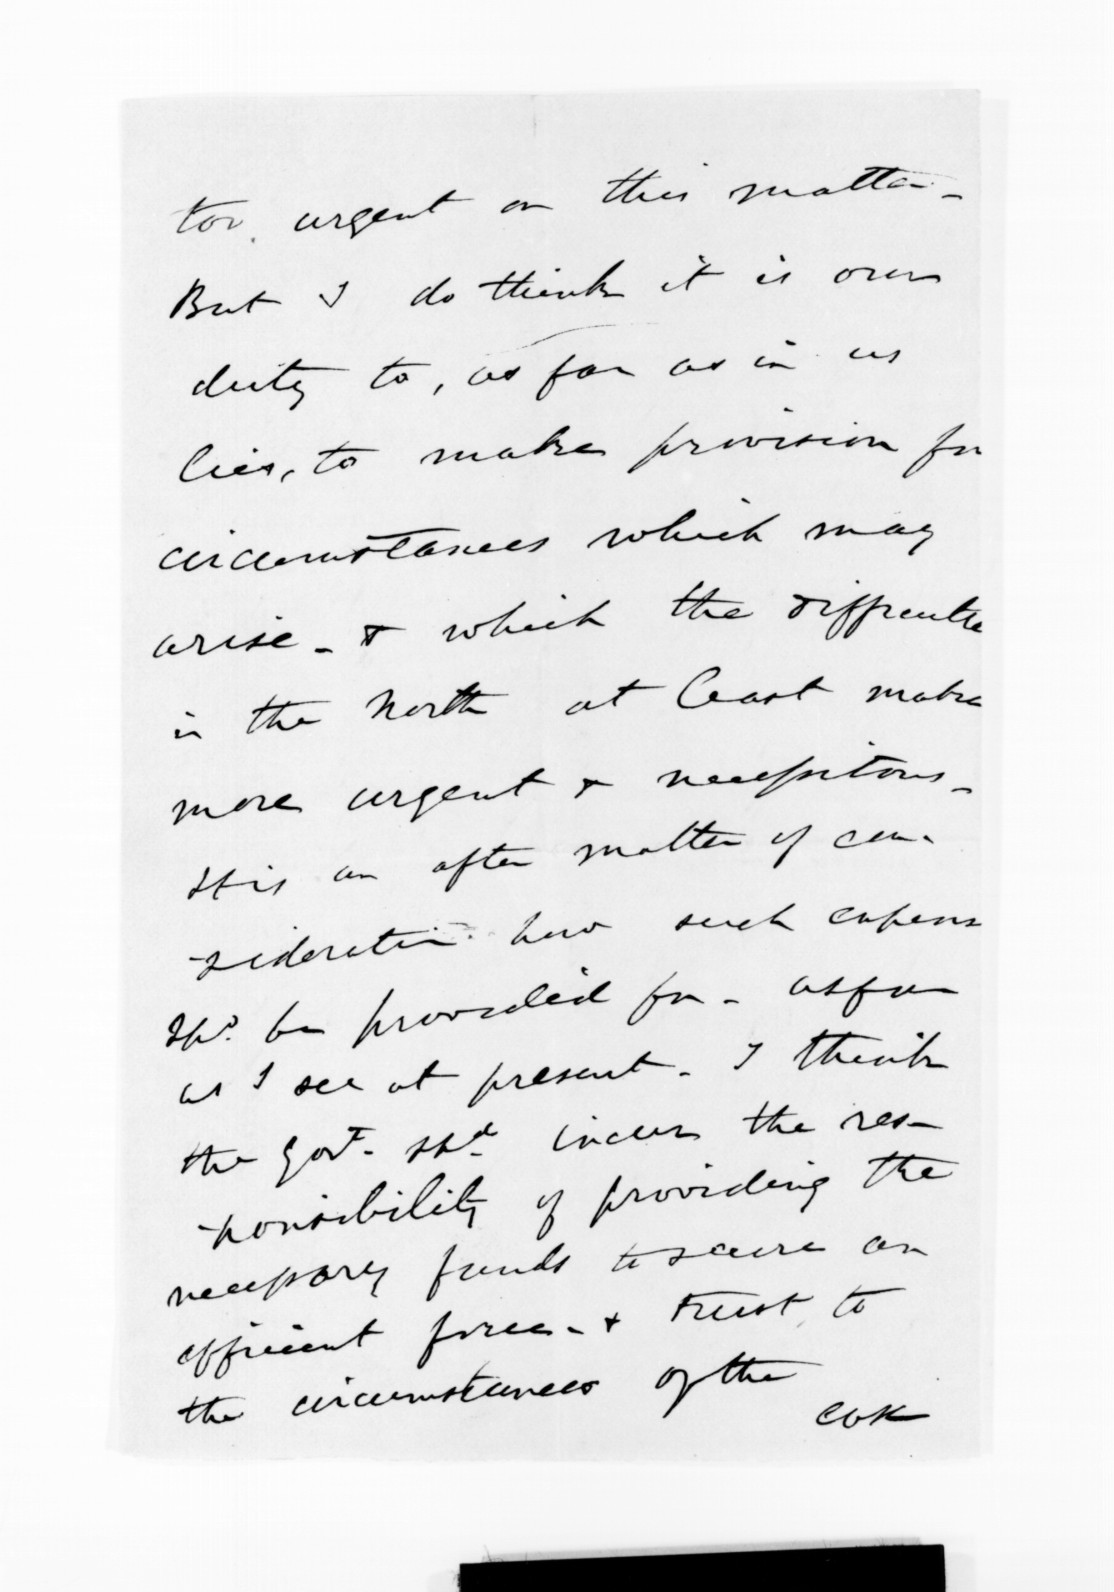 too urgent on this matter -
But I do think it is our
duty to, as far as in us
lies, to make provision for
circumstances which may
arise - & which the difficultie
in the North at least make
more urgent & necessitous -
It is an after matter of con-
-sideration how such expens
shd. be provided for - as far
as I see at present - I think
the Govt. shd. incur the res-
-ponsibility of providing the
necessary funds to secure an
efficient force - & trust to
the circumstances of the